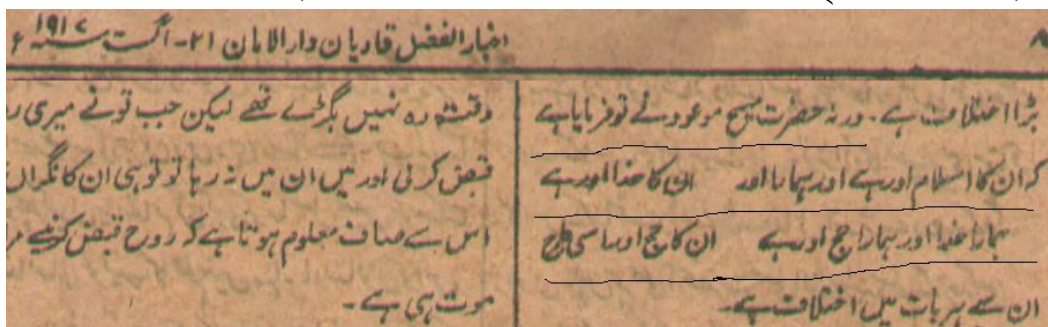 ۸
اخبار الفضل قادیان دارالامان ۲۱-اگست سنہ ۱۹۱۷ء
بڑا اختلاف ہے۔ ورنہ حضرت مسیح موعود نے تو فرمایا ہے
کہ ان کا اسلام اور ہے اور ہمارا اور ان کا خدا اور ہے
ہمارا خدا اور ہمارا حج اور ہے ان کا حج اور اسی طرح
ان سے ہر بات میں اختلاف ہے۔
وقت وہ نہیں بگڑے تھے لیکن جب تونے میری
قبض کرلی اور میں ان میں نہ رہا تو تو ہی ان کا نگراں
اس سے صاف معلوم ہوتا ہے کہ روح قبض کرنیسے
موت ہی ہے۔